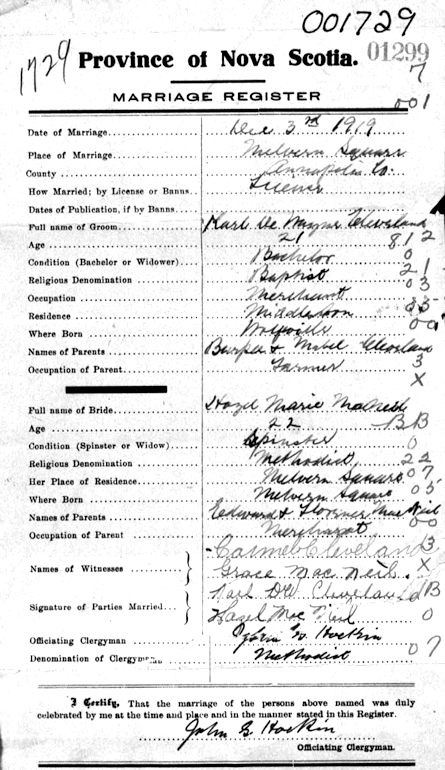 001729
1729
Province of Nova Scotia. 01299
7
MARRIAGE REGISTER 001
Date of Marriage Dec 3rd 1919
Place of Marriage Melvern Square
County Annapolis Co.
How Married; by License or Banns License
Dates of Publication, if by Banns
Full name of Groom Karl De Wayne Cleveland
Age 21 812
Condition (Bachelor or Widower) Bachelor 0
Religious Denomination Baptist 21
Occupation Merchant 03
Residence Middleton
Where Born Wolfville
Names of Parents Burpee & Mabel Cleveland
Occupation of Parent Farmer 3
X
Full name of Bride Hazel Marie MacNeil
Age 22 BB
Condition (Spinster or Widow) Spinster 0
Religious Denomination Methodist 22
Her Place of Residence Melvern Square 07
Where Born Melvern Square 05
Names of Parents Edward & Florence MacNeil
Occupation of Parent Merchant 00
Names of Witnesses Cleveland 3
Grace Mac Neil. X
Signature of Parties Married Karl DW Cleveland B
Hazel Mac Neil 0
Officiating Clergyman John G Hockin
Denomination of Clergyman Methodist 07
I Certify, That the marriage of the persons above named was duly
celebrated by me at the time and place and in the manner stated in this Register.
John G Hockin
Officiating Clergyman.